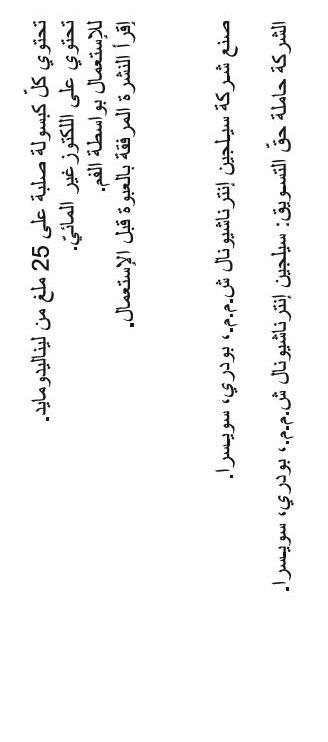 تحتوي كلّ كبسولة صلبة على 25 ملغ من ليناليدومايد.
تحتوي على اللكتوز غير المائيّ.
للإستعمال بواسطة الفم.
إقرأ النشرة المرفقة بالعبوة قبل الإستعمال.
صنع شركة سيلجين إنترناشيونال ش.م.م.، بودري، سويسرا.
الشركة حاملة حقّ التسويق: سيلجين إنترناشيونال ش.م.م.، بودري، سويسرا.